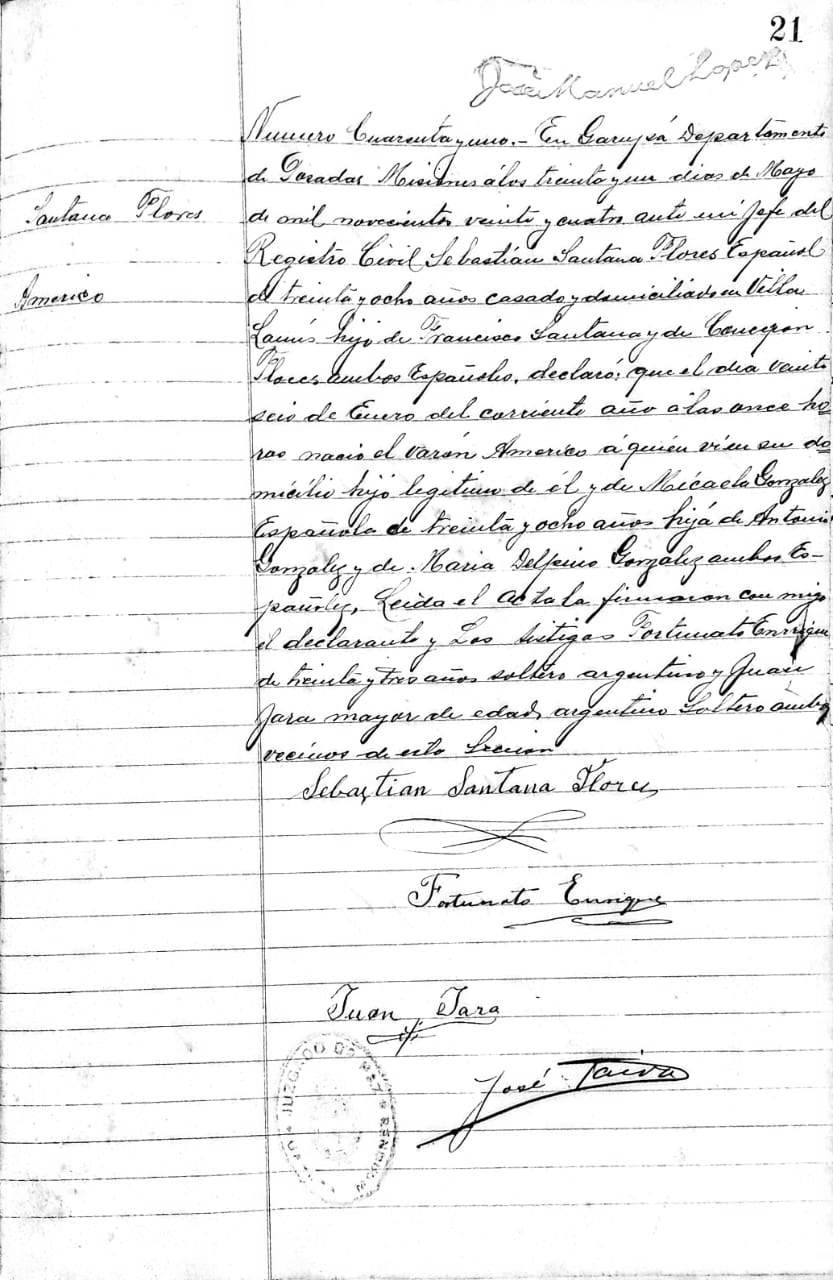 21
José Manuel Lopez
Numero Cuarenta y uno.- En Garupá Departamento
de Posadas Misiones á los treinta y un dias de Mayo
Santana Flores
de mil novecientos veinte y cuatro ante mi Jefe del
Registro Civil Sebastián Santana Flores Español
Americo
de treinta y ocho años casado y domiciliado en Villa
Lanús hijo de Francisco Santana y de Concepcion
Flores ambos Españoles, declaró: que el dia veinti
seis de Enero del corriente año á las once ho
ras nació el varón Americo á quien vi en su do
micilio hijo legitimo de él y de Micaela Gonzalez
Española de treinta y ocho años hija de Antonio
Gonzalez y de Maria Delfino Gonzalez ambos Es-
pañoles, Leida el Acta la firmaron con migo
el declarante y Los testigos Fortunato Enrique
de treinta y tres años soltero argentino y Juan
Jara mayor de edad, argentino Soltero ambos
vecinos de esta Seccion
Sebastian Santana Flores
Fortunato Enrique
Juan Jara
José Paiva
JUZGADO DE PAZ